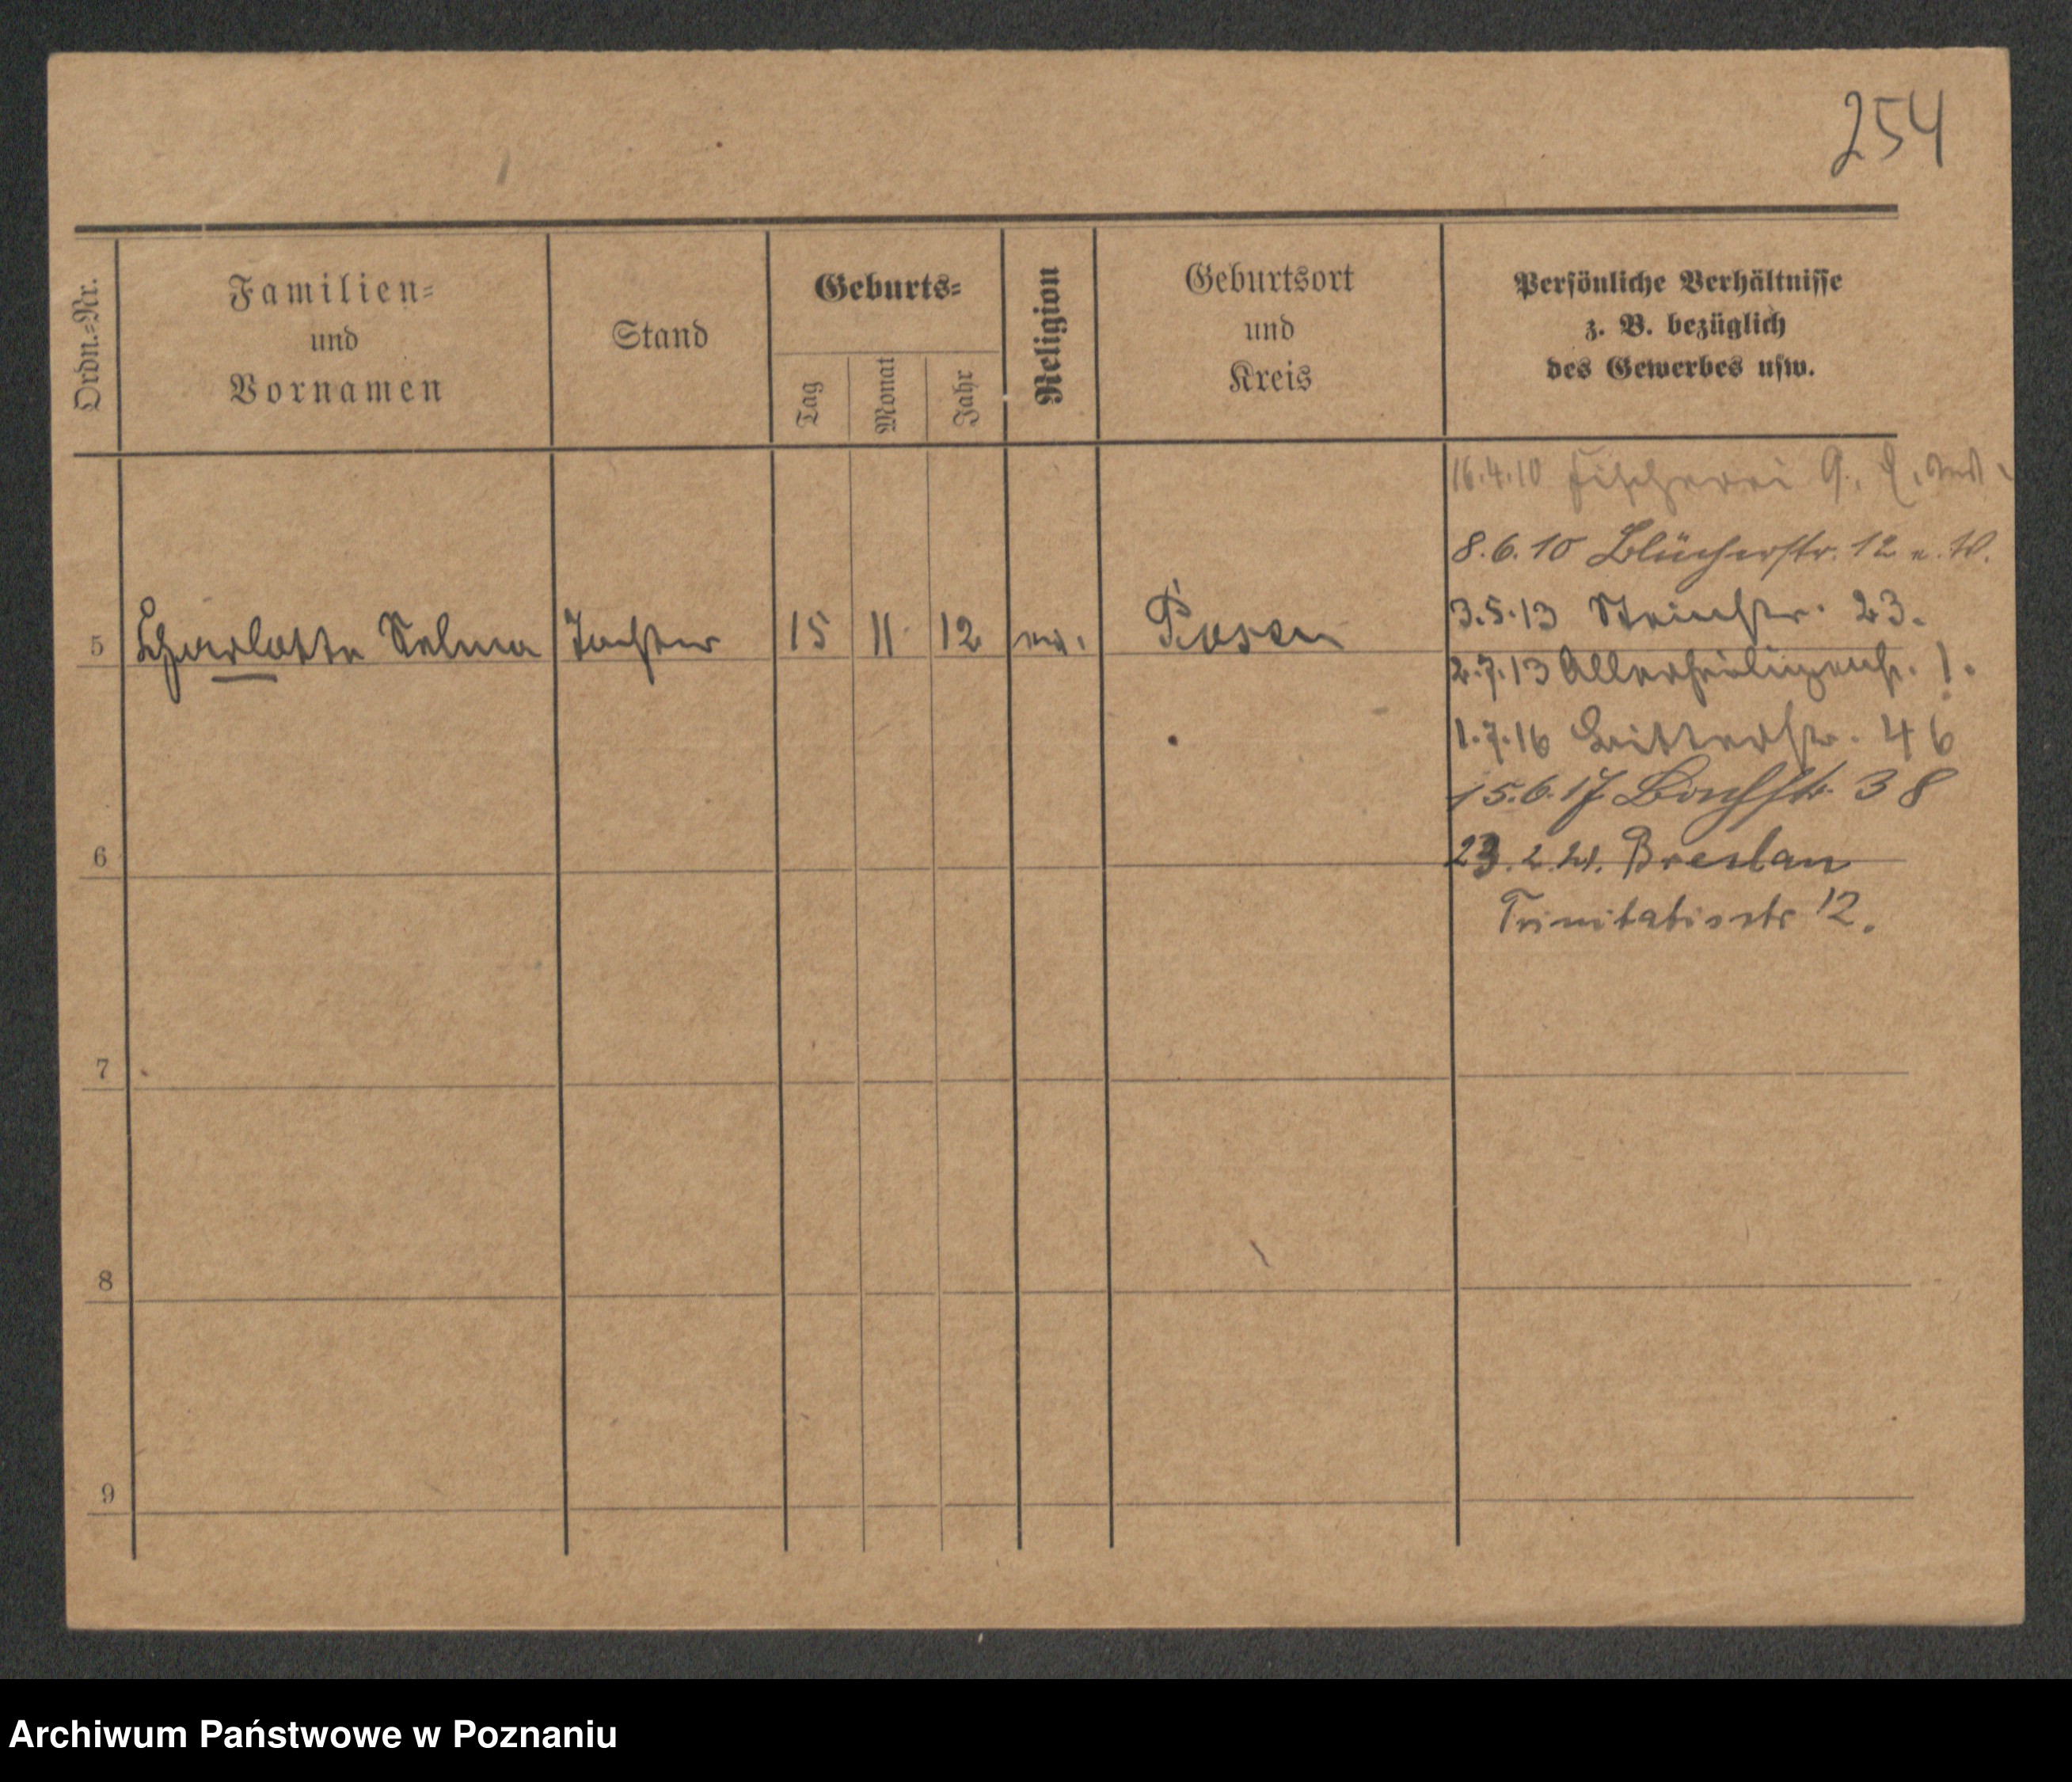 254
Ordn.=Nr.
Familien=
und
Vornamen
Stand
Geburts=
Tag
Monat
Jahr
Religion
Geburtsort
und
Kreis
Persönliche Verhältnisse
z. B. bezüglich
des Gewerbes usw.
16.4.10 Fischerei 9.
8.6.10 Blücherstr. 12 n. W.
3.5.13 Steinstr. 23.
5 Charlotte Selma Tochter 15 11 12 ev. Posen
2.7.13 Allerheiligenstr. 1.
1.7.16 Bitterstr. 46
15.6.17 Bachstr. 38
6
23.2.21. Breslau
Trinitatisstr 12.
7
8
9
Archiwum Państwowe w Poznaniu